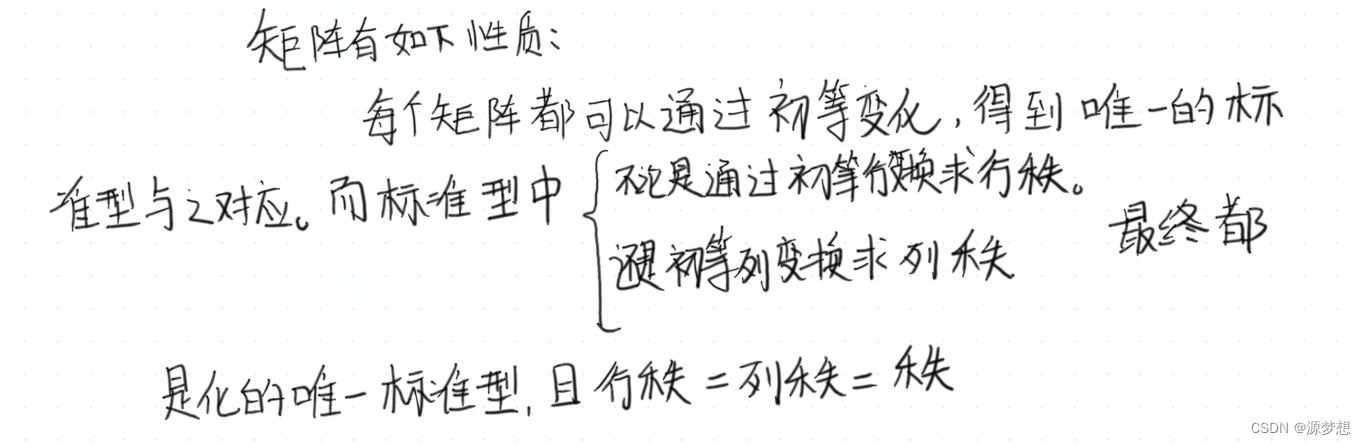 矩阵有如下性质:
每个矩阵都可以通过初等变化,得到唯一的标
准型与之对应。而标准型中
不论是通过初等行变换求行秩。
还是初等列变换求列秩
最终都
是化的唯一标准型,且行秩=列秩=秩
CSDN @源梦想